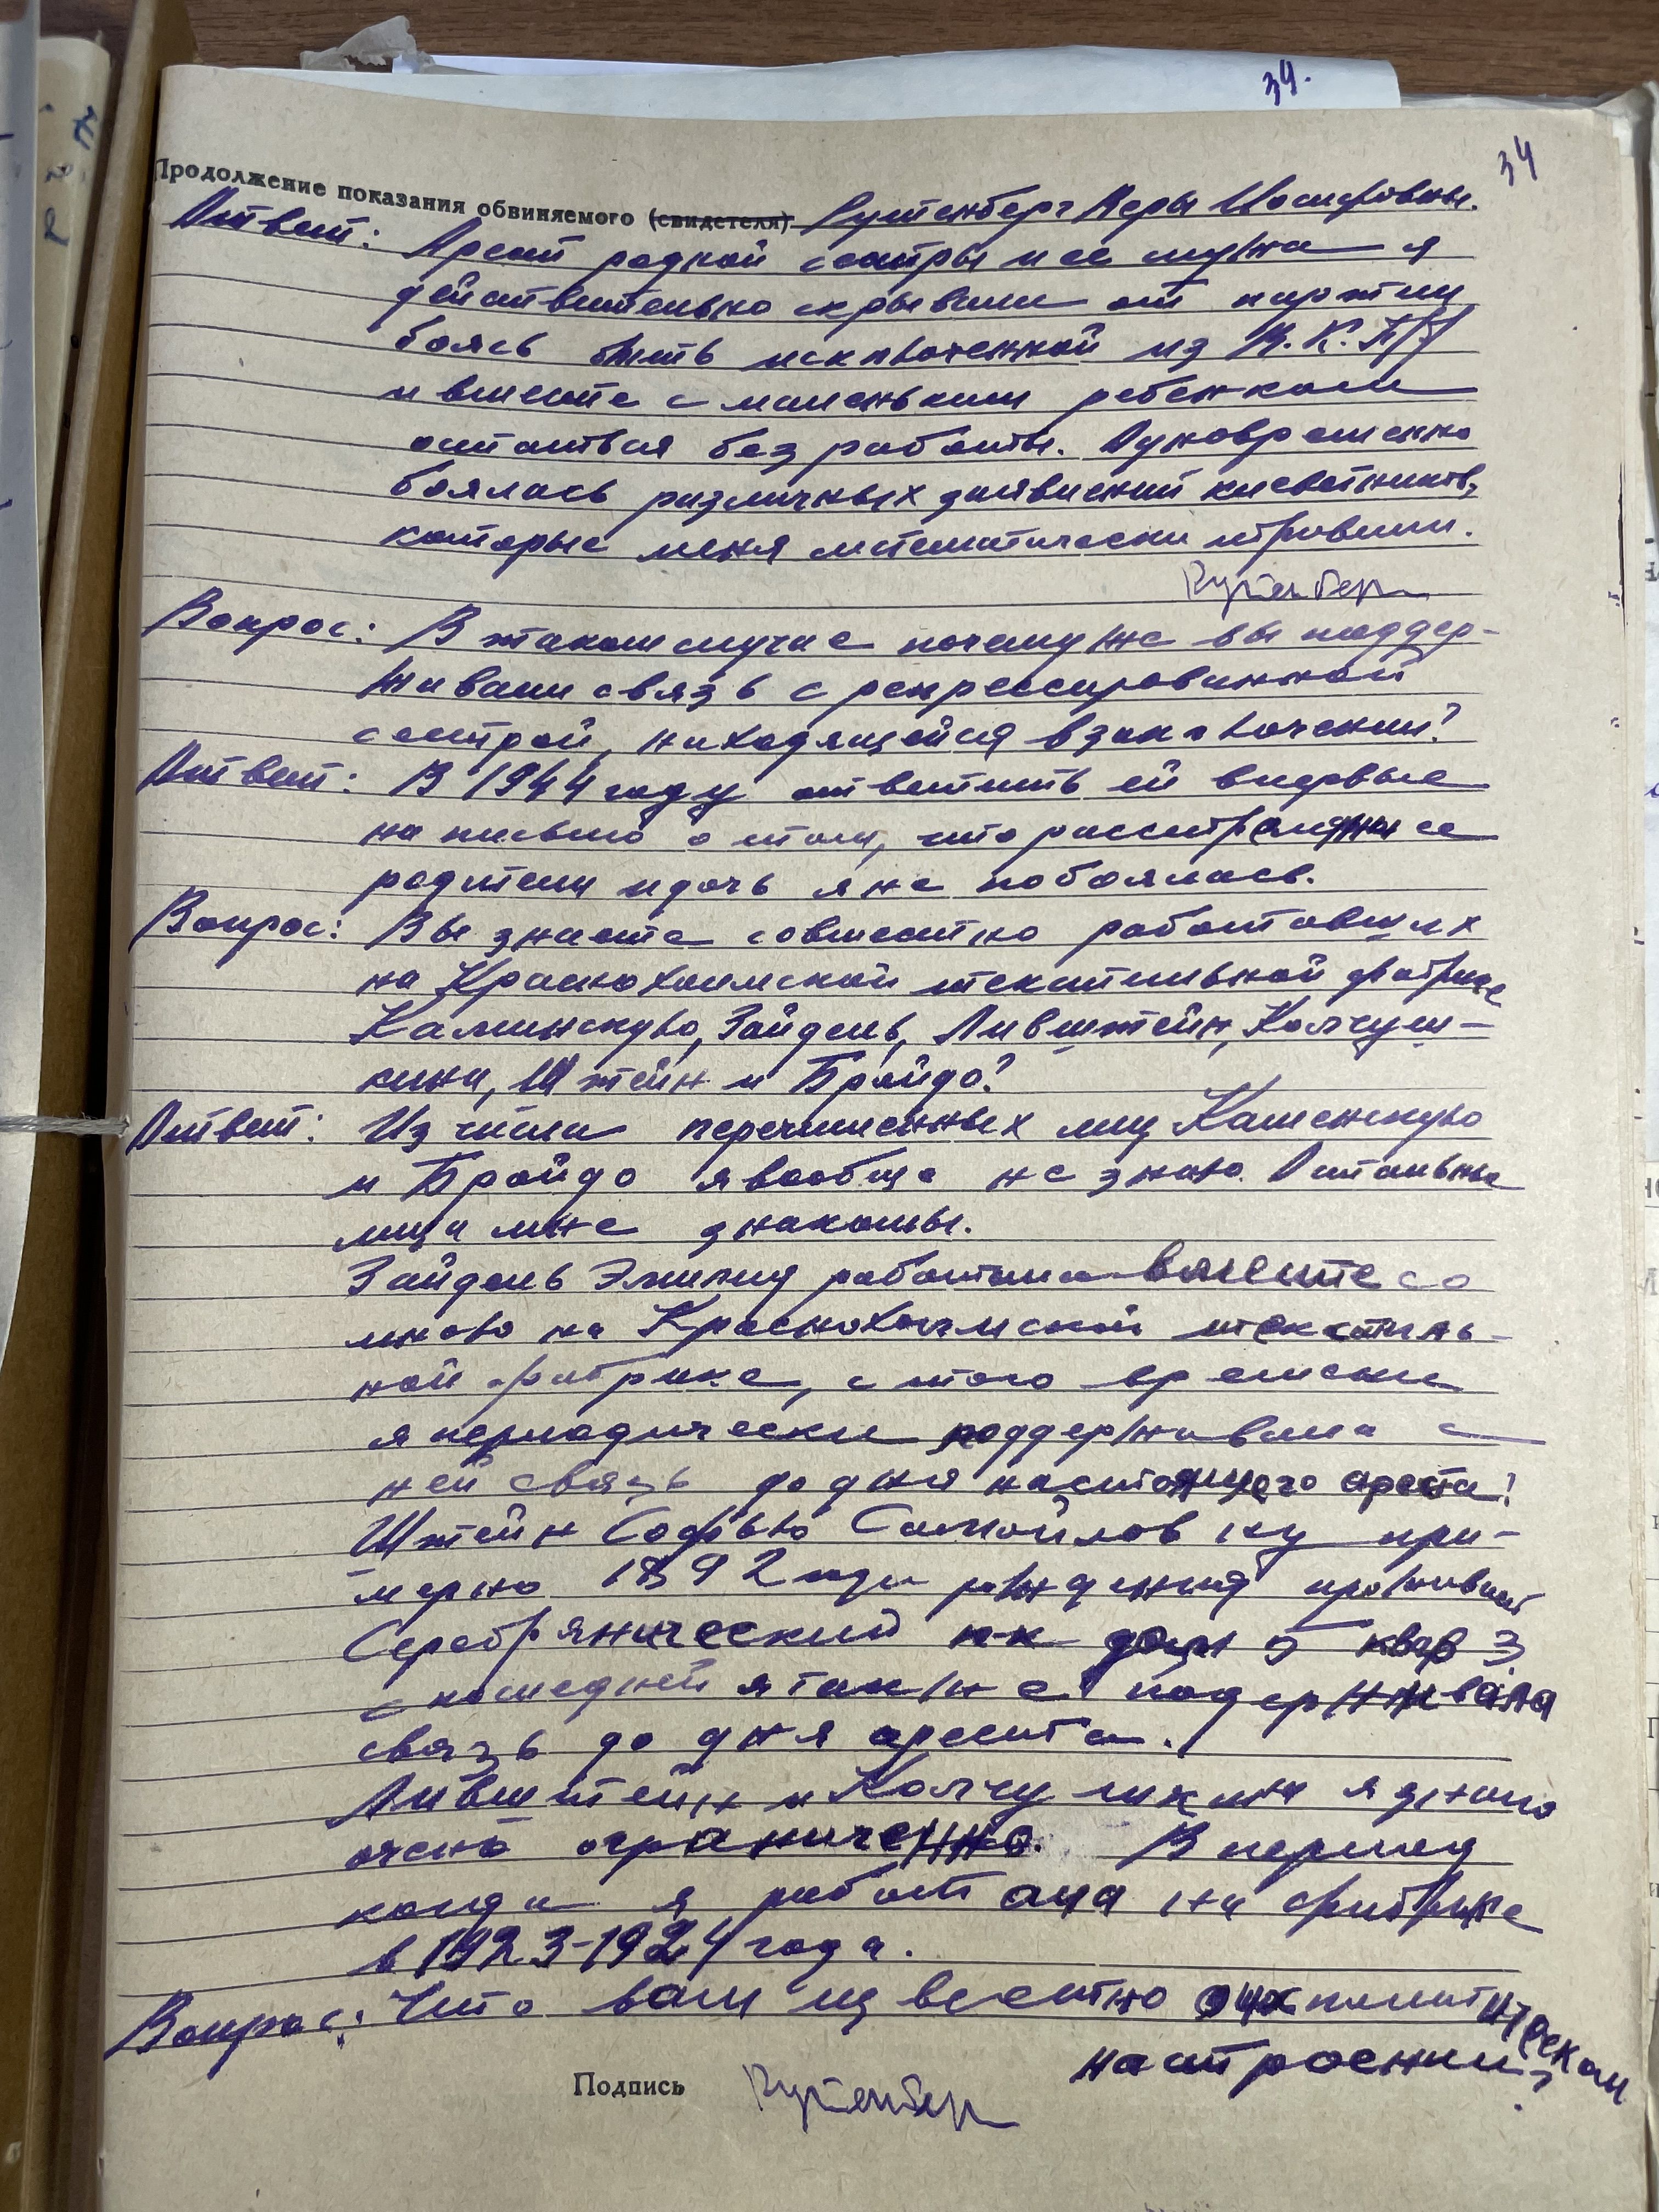 34.
34
Продолжение показания обвиняемого (свидетеля) Рутенберг Веры Иосифовны.
Ответ: Арест родной сестры и ее мужа я
действительно скрывали от партии
боясь быть исключенной из В.К.П/б
и вместе с маленьким ребенком
остаться без работы. Одновременно
боялась различных заявлений клеветников,
которые меня систематически травили.
Рутенберг
Вопрос: В таком случае почему же вы поддер-
живали связь с репрессированной
сестрой, находящейся в заключении?
Ответ: В 1944 году ответить ей впервые
на письмо о том, что расстреляны ее
родители и дочь я не побоялась.
Вопрос: Вы знаете совместно работавших
на Краснохолмской текстильной фабрике
Каминскую, Зайдель, Ливштейн, Колчуш-
кина, Штейн и Бройдо?
Ответ: Из числа перечисленных лиц Каменскую
и Бройдо я вообще не знаю. Остальные
лица мне знакомы.
Зайдель Эмилия работала вместе со
мною на Краснохолмской текстиль-
ной фабрике, с того времени
я периодически поддерживала с
ней связь до дня настоящего ареста!
Штейн Софью Самойловну при-
мерно 1892 года рождения проживает
Серебрянический п-к дом 5 квар 3
с последней я также подерживала
связь до дня ареста.
Ливштейн и Колчушкина я знала
очень ограниченно. В период
когда я работала на фабрике
в 1923-1924 года.
Вопрос: Что вам известно о их политическом
настроении?
Подпись Рутенберг